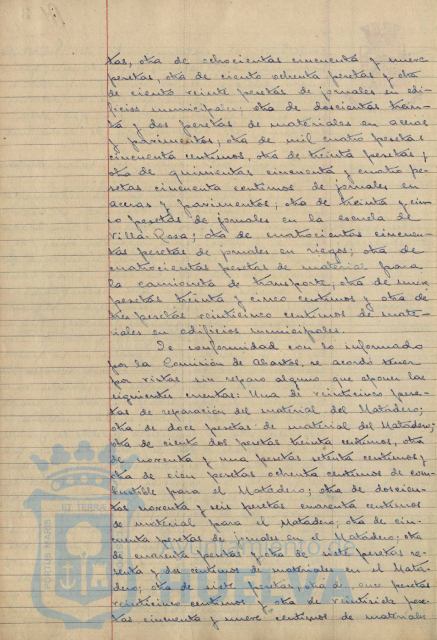 tas, otra de ochocientas cincuenta y nueve
pesetas, otra de ciento ochenta pesetas y otra
de ciento veinte pesetas de jornales en edi-
ficios municipales; otra de doscientas trein-
ta y dos pesetas de materiales en aceras
y pavimentos; otra de mil cuatro pesetas
cincuenta centimos, otra de treinta pesetas y
otra de quinientas cincuenta y cuatro pe-
setas cincuenta centimos de jornales en
aceras y pavimentos; otra de treinta y cin-
co pesetas de jornales en la escuela de
Villa Rosa; otra de cuatrocientas cincuen-
tas pesetas de jornales en riegos; otra de
cuatrocientas pesetas de material para
la camioneta de transporte; otra de nueve
pesetas treinta y cinco centimos y otra de
tres pesetas veinticinco centimos de mate-
riales en edificios municipales.
De conformidad con lo informado
por la Comisión de Abastos, se acordó tener
por vistas sin reparo alguno que oponer las
siguientes cuentas: Una de veinticinco pese-
tas de reparación del material del Matadero;
otra de doce pesetas de material del Matadero;
otra de ciento dos pesetas treinta centimos, otra
de noventa y una pesetas setenta centimos y
otra de cien pesetas ochenta centimos de com-
bustible para el Matadero; otra de doscien-
tas noventa y seis pesetas cuarenta centimos
de material para el Matadero; otra de cin-
cuenta pesetas de jornales en el Matadero; otra
de cuarenta pesetas y otra de siete pesetas se-
senta y dos centimos de materiales en el Mata-
dero; otra de siete pesetas, otra de once pesetas
veinticinco centimos y otra de veintiseis pese-
tas cincuenta y nueve centimos de materiales
PORTUS MARIS ET TERRAE
Ayuntamiento de
HUELVA